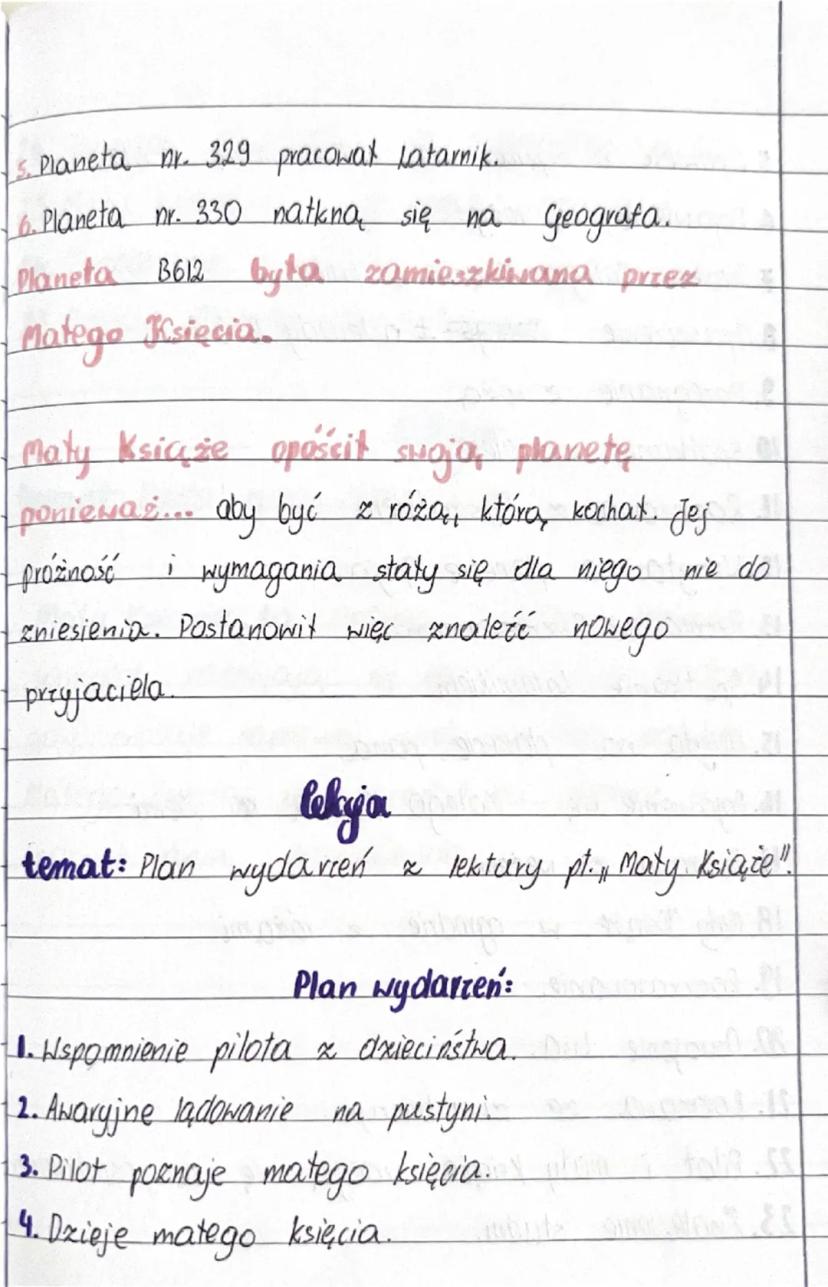 5. Planeta nr. 329 pracował Latarnik.
6. Planeta nr. 330 natkną się na Geografa.
Planeta B612 była zamieszkiwana przez
Małego Księcia.
Mały Książe opóścił swoją planetę
ponieważ... aby być z różą, którą kochał. Jej
próżność i wymagania stały się dla niego nie do
zniesienia. Postanowił więc znaleźć nowego
przyjaciela.
lekcja
temat: Plan wydarzeń z lektury pt. „Mały Książe".
Plan wydarzeń:
1. Wspomnienie pilota z dzieciństwa.
2. Awaryjne lądowanie na pustyni.
3. Pilot poznaje małego księcia.
4. Dzieje małego księcia.